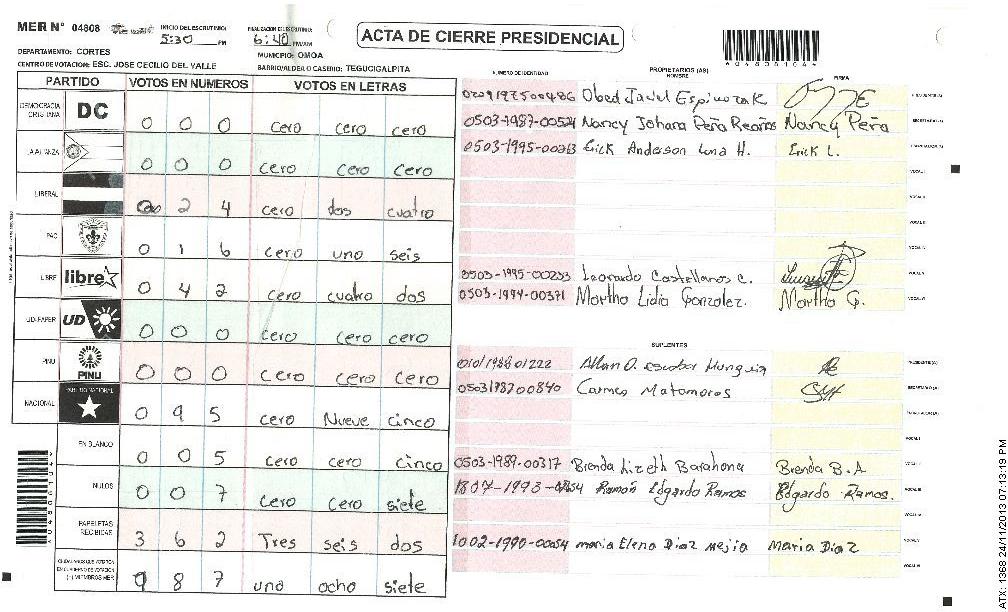 MER N° 04808 INICIO DEL ESCRUTINIO: 5:30 PM FINALIZACION DEL ESCRUTINIO: 6:40 PM/AM
ACTA DE CIERRE PRESIDENCIAL
DEPARTAMENTO: CORTES MUNICPIO: OMOA
CENTRO DE VOTACION: ESC. JOSE CECILIO DEL VALLE BARRIO/ALDEA O CASERIO: TEGUCIGALPITA
PARTIDO VOTOS EN NUMEROS VOTOS EN LETRAS
DEMOCRACIA CRISTIANA DC 0 0 0 cero cero cero
LA ALIANZA 0 0 0 cero cero cero
LIBERAL 2 4 cero dos cuatro
PAC 0 1 6 cero uno seis
LIBRE libre 0 4 2 cero cuatro dos
UD-FAPER UD 0 0 0 cero cero cero
PINU PINU 0 0 0 cero cero cero
NACIONAL PARTIDO NACIONAL 0 9 5 cero Nueve cinco
EN BLANCO 0 0 5 cero cero cinco
NULOS 0 0 7 cero cero siete
PAPELETAS RECIBIDAS 3 6 2 Tres seis dos
CIUDADANOS QUE VOTARON EN CUADERNO DE VOTACION (+) MIEMBROS MER 8 7 uno ocho siete
NUMERO DE IDENTIDAD PROPIETARIOS (AS) NOMBRE FIRMA
Obed Javiel Espinoza R PRESIDENTE(A)
0503-1987-00524 Nancy Johana Peña Reaños Nancy Peña SECRETARIO(A)
0503-1995-00213 Erick Anderson Luna H. Erick L. ESCRUTADOR(A)
VOCAL I
VOCAL II
VOCAL III
VOCAL IV
0503-1995-00233 Leonardo Castellanos C. VOCAL V
0503-1994-00371 Martha Lidia Gonzalez. Martha G. VOCAL VI
SUPLENTES
0101198801222 Allan O. escobar Munguia PRESIDENTE(A)
0503198200840 Carmen Matamoros SECRETARIO(A)
ESCRUTADOR(A)
VOCAL I
0503-1989-00317 Brenda Lizeth Barahona Brenda B.A VOCAL II
1807-1993- Ramón Edgardo Ramos Edgardo Ramos. VOCAL III
VOCAL IV
1002-1990-00054 maria Elena Diaz mejia Maria Diaz VOCAL V
VOCAL VI
ATX: 1368.24/11/2013 07:13:19 PM